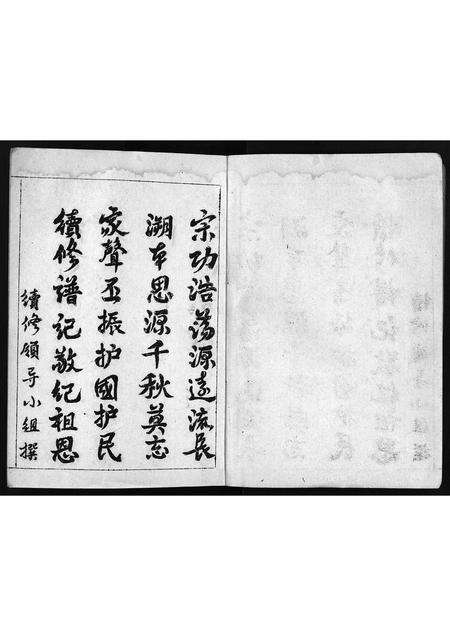 宗功浩荡源远流長
溯本思源千秋莫忘
家聲丕振护國护民
續修譜記敬纪祖恩
續修领导小组撰